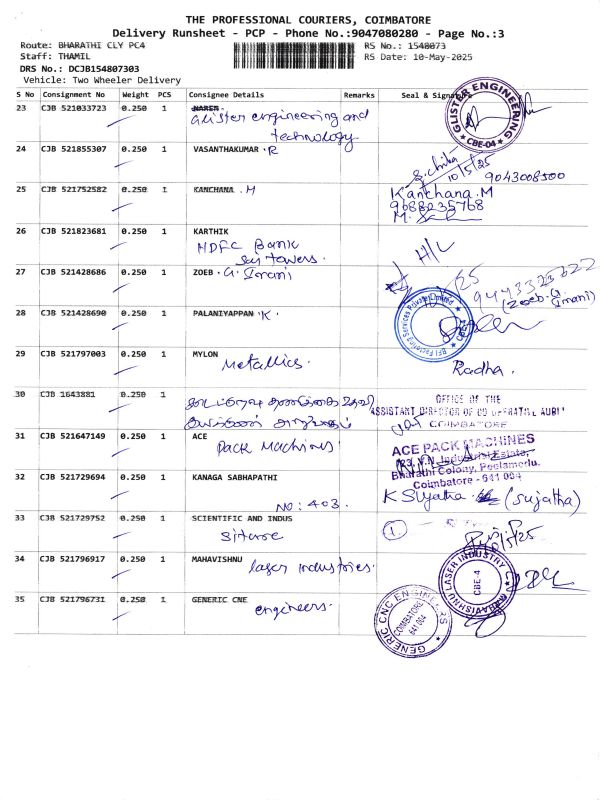 THE PROFESSIONAL COURIERS, COIMBATORE
Delivery Runsheet - PCP - Phone No.:9047080280 - Page No.:3
Route: BHARATHI CLY PC4 RS No.: 1548073
Staff: THAMIL RS Date: 10-May-2025
DRS No.: DCJB154807303
Vehicle: Two Wheeler Delivery
S No Consignment No Weight PCS Consignee Details Remarks Seal & Signature
23 CJB 521033723 0.250 1 NAREN
Glister engineering and
technology
GLISTER ENGINEERING
CBE-04
24 CJB 521855307 0.250 1 VASANTHAKUMAR . R
10/5/25
9043008500
25 CJB 521752582 0.250 1 KANCHANA . M
Kanchana.M
9688235768
26 CJB 521823681 0.250 1 KARTHIK
HDFC Bank
Sri towers.
H/L
27 CJB 521428686 0.250 1 ZOEB . G. Irani
(Zoeb.G. Irani)
28 CJB 521428690 0.250 1 PALANIYAPPAN . K.
29 CJB 521797003 0.250 1 MYLON
Metallics.
Radha.
30 CJB 1643881 0.250 1
OFFICE OF THE
ASSISTANT DIRECTOR OF CO OPERATIVE AUDIT
COIMBATORE
31 CJB 521647149 0.250 1 ACE
Pack Machines
ACE PACK MACHINES
Industrial Estate,
Bharathi Colony, Peelamedu.
Coimbatore - 641 004
32 CJB 521729694 0.250 1 KANAGA SABHAPATHI
NO: 403.
K Sujatha (Sujatha)
33 CJB 521729752 0.250 1 SCIENTIFIC AND INDUS
1.
34 CJB 521796917 0.250 1 MAHAVISHNU
laser Industries.
MAHAVISHNU LASER INDUSTRY
CBE-4
35 CJB 521796731 0.250 1 GENERIC CNE
engineers.
GENERIC CNC ENGINEERS
COIMBATORE
641 004